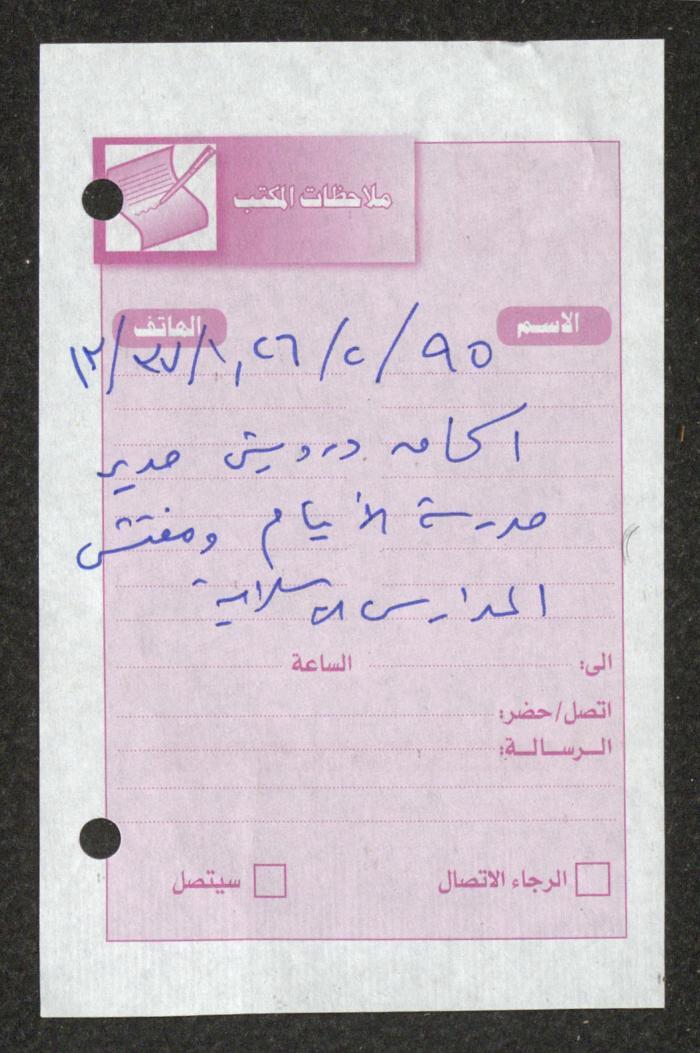 ملاحظات المكتب
الاسم الهاتف
١٣/٣٧/١,٢٦/٢/٩٥
درويش مدير
مدرسة الأيتام ومفتش
المدارس الاسلامية
الى: الساعة
اتصل/حضر:
الرسالة:
الرجاء الاتصال سيتصل